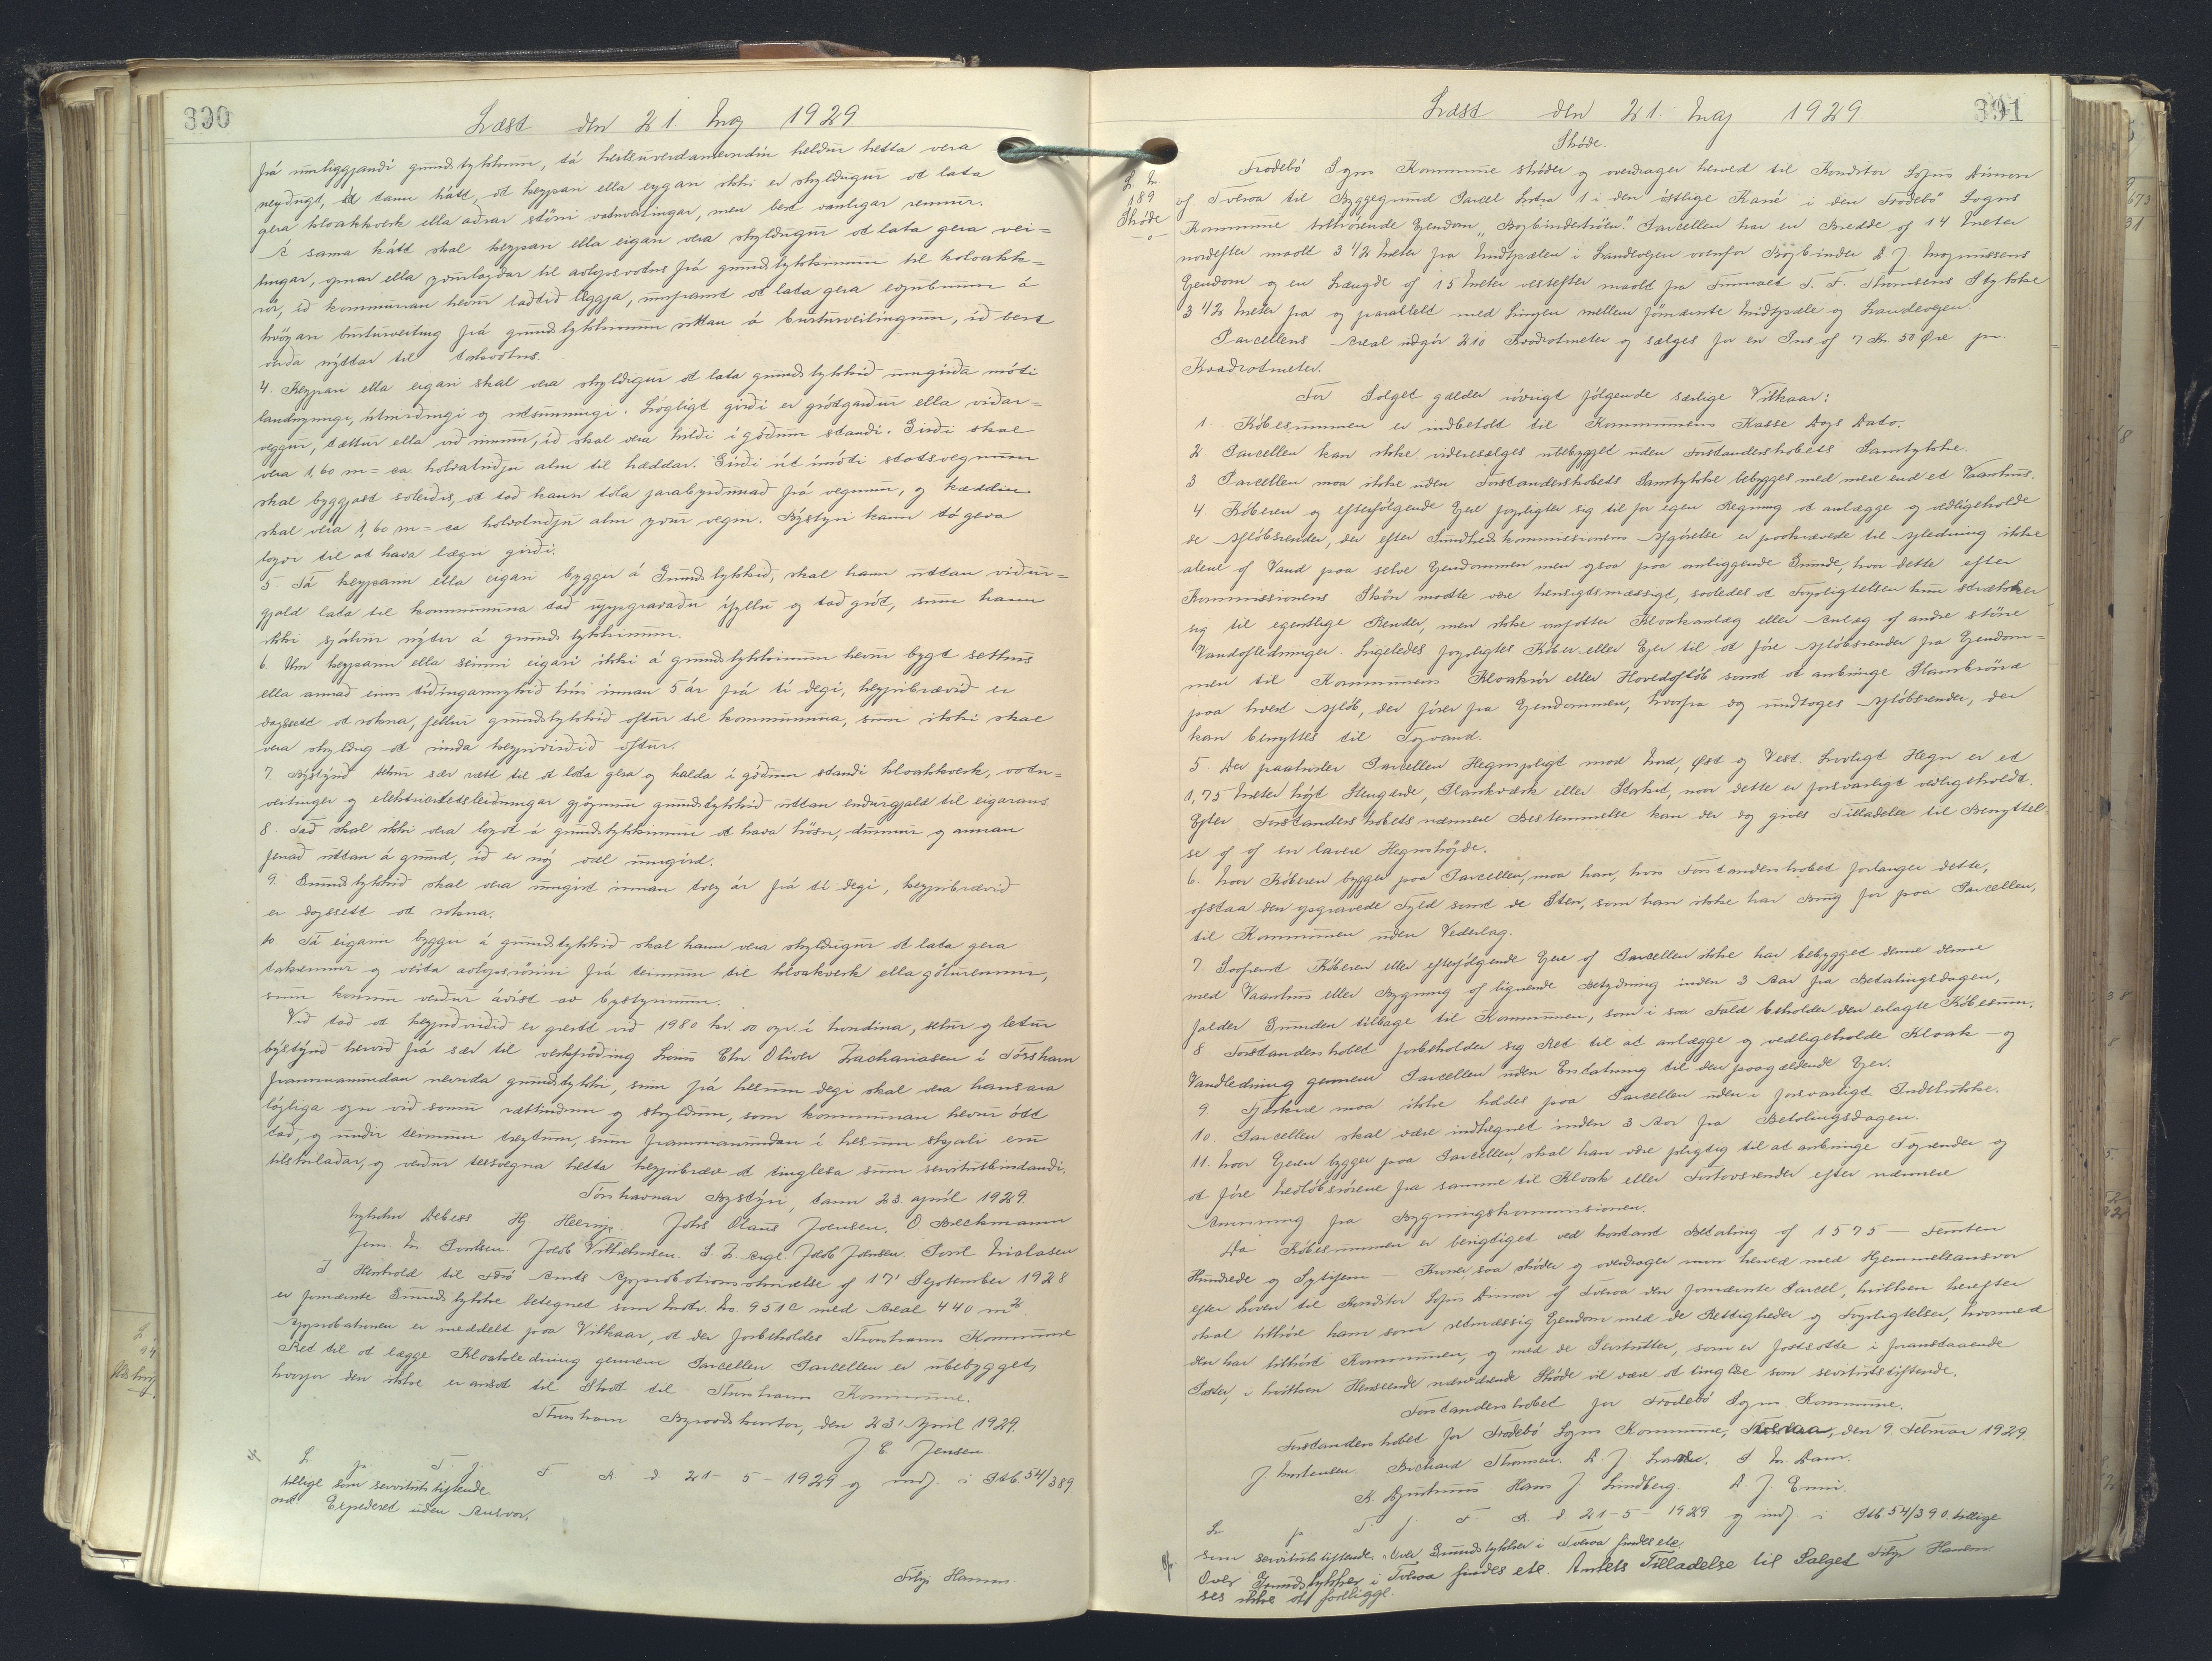 390
Læst den 21. Maj 1929
frá umliggjandi grundstykkum, tá heilsuverdarnevndin heldur hetta vera
neyðugt, tó tann hátt, at keyparin ella eygarin ikki er skyldugur at lata
gera kloakkverk ella aðrar størri vatnveitingar, men bert vanligar rennur.
Á sama hátt skal keyparin ella eigarin vera skyldugur at lata gera vei=
tingar, opnar ella yvurlagdar til avlopsvatns frá grundstykkinum til kloakk=
rør, ið kommunan hevur latið leggja, umframt at lata gera egnubrunn á
hvørjari burturveiting frá grundstykkinum uttan á burturveitingum, ið bert
verða nýttar til takvatns.
4. Keypari ella eigari skal vera skyldigur at lata grundstykkið umgirða móti
landnyrðingi, útnyrðingi og útsynningi. Lógligt girði er grótgarður ella viðar=
veggur, tættur ella við rimum, ið skal vera hildi í góðum standi. Girði skal
vera 1,60 m = ca. halvatriðju alin til hæddar. Girði út ímóti statsvegnum
skal byggjast soleiðis, at tað kann tola jarðtrýstnað frá vegnum, og hæddin
skal vera 1,60 m = ca halvatriðju alin yvur vegin. Býstýri kann tó geva
loyvi til at hava lægri girði.
5. Tá keyparin ella eigari byggir á Grundstykkið, skal hann uttan viður=
gjald lata til kommununa tað uppgravaðu ífyllu og tað grót, sum hann
ikki sjálvur nýtir á grundstykkinum.
6. Um keyparin ella seinni eigari ikki á grundstykkinum hevur bygt sethus
ella annað eins týdningarmykið hús innan 5 ár frá tí degi, keypibrævið er
dagsett at rokna, fellur grundstykkið aftur til kommununa, sum ikki skal
vera skyldug at rinda keypivirðið aftur.
7. Býstýrið tekur sær rætt til at lata gera og halda í góðum standi kloakkverk, vatn=
veitingar og elektricitetsleiðningar gjøgnum grundstykkið uttan endurgjald til eigarans
8. Tað skal ikki vera loyvt á grundstykkinum at hava høsn, dunnur og annan
fenað uttan á grund, ið er nóg væl umgird.
9. Grundstykkið skal vera umgirt innan tvey ár frá tí degi, keypibrævið
er dagsett at rokna.
10 Tá eigarin byggir á grundstykkið skal hann vera skyldigur at lata gera
takrennur og veita avlopsrørini frá teimum til kloakverk ella gøturennur,
sum honum verður ávíst av býstýrinum.
Við tað at keypivirðið er greitt við 1980 kr. 00 oyr. í hondina, selur og letur
býstýrið hervið frá sær til verkfrøðing Louis Chr. Oliver Zachariasen í Tórshavn
frammanundan nevnda grundstykki, sum frá hesum degi skal vera hansara
lógliga ogn við somu rættindum og skyldum, som kommunan hevur átt
tað, og undir teimum treytum, sum frammanundan í hesum skjali eru
tilskilaðar, og verður teesvegna hetta keypibræv at tinglesa sum servitutbindandi.
Tórshavnar Býstýri, tann 23. apríl 1929.
Mikkjal Debess Hj Heering. Johs. Olaus Joensen. O. Brekmann
Jens M. Poulsen. Jacob Vilhelmsen. S. P. Arge Jacob Johnsen. Poul Niclasen
I Henhold til Færø Amts Approbationsskrivelse af 17' September 1928
er fornævnte Grundstykke betegnet som Matr. No. 951c med Areal 440 m²
Approbationen er meddelt paa Vilkaar, at der forbeholdes Thorshavns Kommune
Ret til at lægge Kloakledning gennem Parcellen. Parcellen er ubebygget,
hvorfor den ikke er ansat til Skat til Thorshavns Kommune.
Thorshavn Byraadskontor, den 23' April 1929.
J. E. Jensen.
L p. T. f. F R. d. 21-5-1929 og indf. i Skb. 54/389
tillige som servitutstiftende
Expederet uden Ansvar.
Filip Hansen
391
Læst den 21. Maj 1929.
Skøde.
L. No
189
Skøde
Frodebø Sogns Kommune skøder og overdrager herved til Konditor Sofus Dimon
af Tveraa til Byggegrund Parcel Matr. 1 i den østlige Karré i den Frodebø Sogns
Kommune tilhørende Ejendom "Bogbindertrøen". Parcellen har en Bredde af 14 Meter
nordefter maalt 3 1/2 Meter fra Midtpælen i Landevejen ovenfor Bogbinder D. J. Magnussens
Ejendom og en Længde af 15 Meter vestefter maalt fra Firmaet T. F. Thomsens Stykke
3 1/2 Meter fra og parallelt med Linjen mellem fornævnte Midtpæle og Landevejen.
Parcellens Areal udgør 210 Kvadratmeter og sælges for en Pris af 7 Kr. 50 Øre pr.
Kvadratmeter.
For Salget gælder iøvrigt følgende særlige Vilkaar:
1. Købesummen er indbetalt til Kommunens Kasse Dags Dato.
2. Parcellen kan ikke videresælges ubebygget uden Forstanderskabets Samtykke.
3 Parcellen maa ikke uden Forstanderskabets Samtykke bebygges med mere end et Vaanhus.
4. Køberen og efterfølgende Ejere forpligter sig til for egen Regning at anlægge og vedligeholde
de Afløbsrender, der efter Sundhedskommissionens Afgørelse er paakrævede til Afledning ikke
alene af Vand paa selve Ejendommen men ogsaa paa omliggende Grunde, hvor dette efter
Kommissionens Skøn maatte være hensigtsmæssigt, saaledes at Forpligtelsen kun strækker
sig til egentlige Render, men ikke omfatter Kloakanlæg eller Anlæg af andre større
Vandafledninger. Ligeledes forpligtes Køber eller Ejer til at føre Afløbsrender fra Ejendom=
men til Kommunens Kloakrør eller Hovedafløb samt at anbringe Slambrønd
paa hvert Afløb, der fører fra Ejendommen, hvorfra dog undtages Afløbsrender, der
kan benyttes til Tagvand.
5. Der paahviler Parcellen Hegnspligt mod Nord, Øst og Vest. Lovligt Hegn er et
1,75 Meter højt Stengærde, Plankværk eller Stakit, naar dette er forsvarligt vedligeholdt.
Efter Forstanderskabets nærmere Bestemmelse kan der dog gives Tilladelse til Benyttel-
se af en lavere Hegnshøjde.
6. hvor Køberen bygger paa Parcellen, maa han, hvis Forstanderskabet forlanger dette,
afstaa den opgravede Fyld samt de Sten, som han ikke har Brug for paa Parcellen,
til Kommunen uden Vederlag.
7. Saafremt Køberen eller efterfølgende Ejere af Parcellen ikke har bebygget denne denne
med Vaanhus eller Bygning af lignende Betydning inden 3 Aar fra Betalingsdagen,
falder Grunden tilbage til Kommunen, som i saa Fald beholder den erlagte Købesum.
8. Forstanderskabet forbeholder sig Ret til at anlægge og vedligeholde Kloak- og
Vandledning gennem Parcellen uden Erstatning til den paagældende Ejer.
9. Fjerkræ maa ikke holdes paa Parcellen uden i forsvarligt Indelukke.
10. Parcellen skal være indhegnet inden 3 Aar fra Betalingsdagen.
11. hvor Ejeren bygger paa Parcellen, skal han være pligtig til at anbringe Tagrender og
at føre Nedløbsrørene fra samme til Kloak eller Fortovsrender efter nærmere
Anvisning fra Bygningskommissionen.
Da Købesummen er berigtiget ved kontant Betaling af 1575 – Femten
Hundrede og Sytifem – Kroner, saa skøder og overdrager man herved med Hjemmelsansvar
efter Loven til Konditor Sofus Dimon af Tveraa den fornævnte Parcel, hvilken herefter
skal tilhøre ham som retmæssig Ejendom med de Rettigheder og Forpligtelser, hvormed
den har tilhørt Kommunen, og med de Servitutter, som er fastsatte i foranstaaende
Poster, i hvilken Henseende nærværende Skøde vil være at tinglæse som servitutstiftende.
Forstanderskabet for Frodebø Sogns Kommune.
Forstanderskabet for Frodebø Sogns Kommune, Tveraa, den 9. Februar 1929.
J Mortensen. Richard Thomsen. D. J. . P. M. Dam.
K. Djurhuus Hans J. Lindberg. D. J. .
L p. T. f. F. R. d. 21-5-1929 og indf. i Skb 54/390. tillige
som servitutstiftende. Over Grundstykker i Tveraa findes etc.
Over Grundstykker i Tveraa findes etc. Amtets Tilladelse til Salget Filip Hansen.
ses ikke at foreligge.